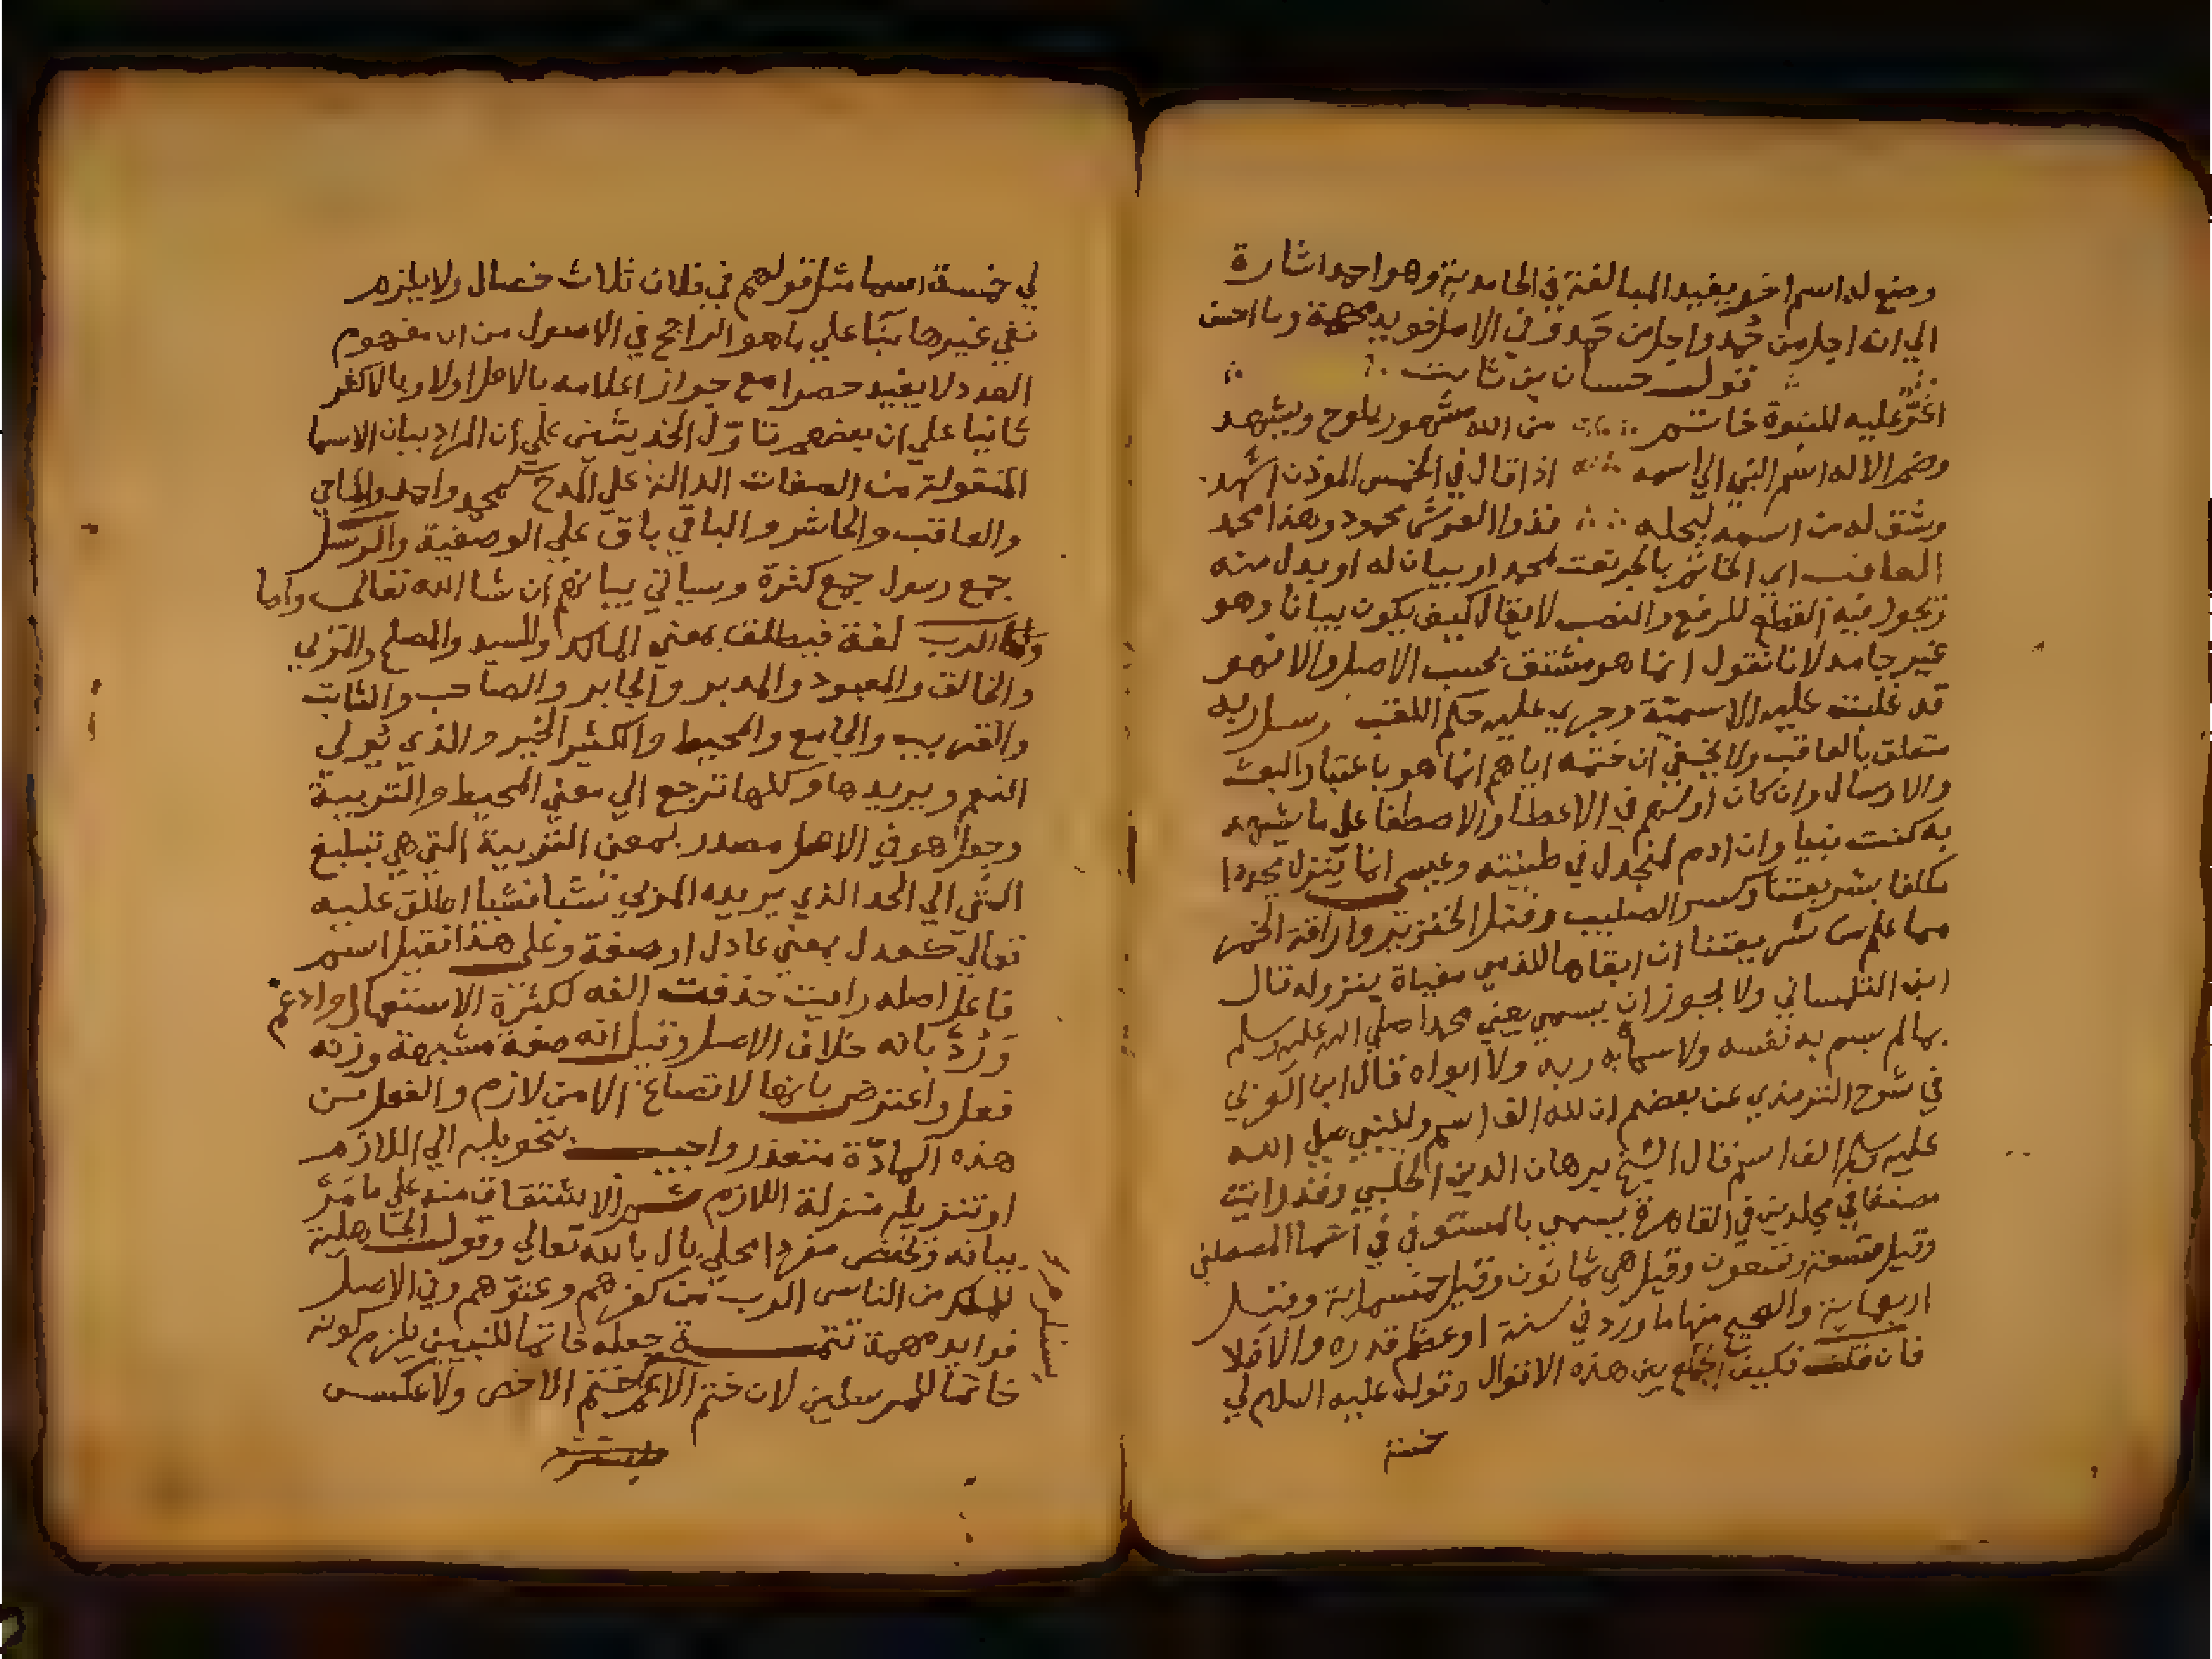 وضع له اسم اخر يفيد المبالغة في الحامدية وهو احمد اشارة
الي انه اجل من حُمد واجل من حَمد وفي الاصل فويد مهمة وما احسن
قول حسان بن ثابت
اغرّ عليه للنبوة خاتم من الله مشهور يلوح ويشهد
وضم الاله اسم النبي الي اسمه اذا قال في الخمس الموذن اشهد
وشق له من اسمه ليجله فذوا العرش محمود وهذا محمد
العاقب اي الخاتم بالجر نعت لمحمد او بيان له او بدل منه
ويجوز فيه القطع للرفع والنصب لا يقال كيف يكون بيانا وهو
غير جامد لانا نقول انما هو مشتق بحسب الاصل والا فهو
قد غلبت عليه الاسمية وجري عليه حكم اللقب رسل ربه
متعلق بالعاقب ولا يخفي ان ختمه اياهم انما هو باعتبار البعث
والارسال وان كان اولهم في الاعطا والاصطفا علي ما يشهد
به كنت نبيا وان ادم لمنجدل في طينته وعيسي انما ينزل مجددا
مكلفا بشريعتنا وكسر الصليب وقتل الخنزير واراقة الخمر
مما علم من شريعتنا ان ابقاها للذمي مغياة بنزوله قال
ابن التلمساني ولا يجوز ان يسمي يعني محمدا صلي الله عليه وسلم
بما لم يسم به نفسه ولا سماه به ربه ولا ابواه قال ابن العربي
في شرح الترمذي عن بعضهم ان لله الف اسم وللنبي صلي الله
عليه وسلم الف اسم قال الشيخ برهان الدين الحلبي وقد رايت
مصنفا في مجلدين في القاهرة يسمي بالمستوفي في اسما المصطفي
وقيل تسعة وتسعون وقيل هي ثمانون وقيل خمسماية وقيل
اربعماية والصحيح منها ما ورد في سنة او عظم قدره والا فلا
فان قلت فكيف الجمع بين هذه الاقوال وقوله عليه السلام لي
خمسة
لي خمسة اسما مثل قولهم في فلان ثلاث خصال ولا يلزم
نفي غيرها بنا علي ما هو الراجح في الاصول من ان مفهوم
العدد لا يفيد حصرا مع جواز اعلامه بالاقل اولا وبالاكثر
ثانيا علي ان بعضهم تاول الحديثين علي ان المراد بيان الاسما
المنقولة من الصفات الدالة علي المدح كمحمد واحمد والماحي
والعاقب والحاشر والباقي باق علي الوصفية والرسل
جمع رسول جمع كثرة وسياتي بيانهم ان شا الله تعالي واما
الرب لغة فيطلق بمعني المالك والسيد والمصلح والمربي
والخالق والمعبود والمدبر والجابر والصاحب والثابت
والقريب والجامع والمحيط والكثير الخير والذي يولي
النعم ويريدها وكلها ترجع الي معني المحيط والتربية
وجعل هو في الاصل مصدر بمعني التربية التي هي تبليغ
الشي الي الحد الذي يريده المربي شيا فشيا اطلق عليه
تعالي كعدل بمعني عادل او صفة وعلي هذا فقيل اسم
فاعل اصله رابب حذفت الفه لكثرة الاستعمال وادغم
وَرُدّ بانه خلاف الاصل وقيل انه صفة مشبهة وزنه
فعل واعترض بانها لا تصاغ الا من لازم والفعل من
هذه المادّة متعذر واجيب بتحويله الي اللازم
او تنزيله منزلة اللازم ثم الاشتقاق منه علي ما مَرّ
بيانه ويختص مفردا محلي بال بالله تعالي وقول الجاهلية
للملك من الناس الرب من كفرهم وعتوّهم وفي الاصل
فوايد مهمة تتمة جعله خاتما للنبيين يلزم كونه
خاتما للمرسلين لان ختم الاعم ختم الاخص ولا عكس